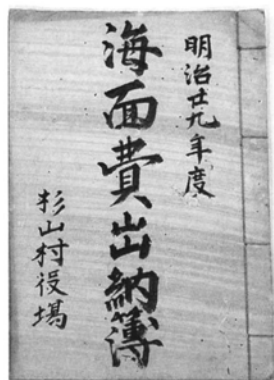 明治廿九年度
海面費出納簿
杉山村役場